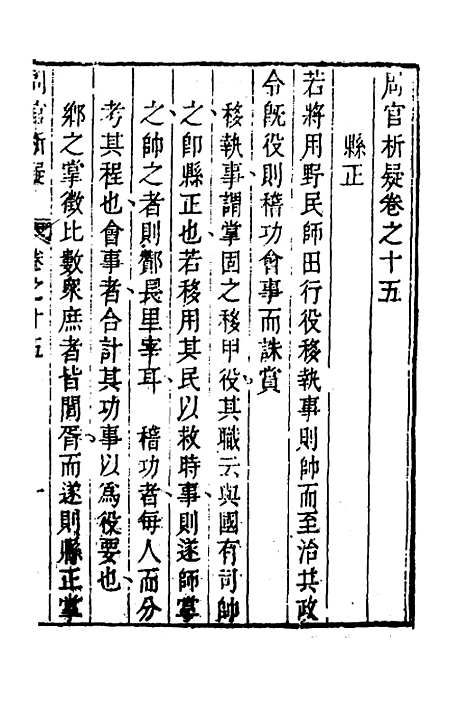 周官析疑卷之十五
縣正
若將用野民師田行役移執事則帥而至治其政
令既役則稽功會事而誅賞
移執事謂掌固之移甲役其職云與國有司帥
之即縣正也若移用其民以救時事則遂師掌
之帥之者則酇長里宰耳　稽功者每人而分
考其程也會事者合計其功事以爲役要也
鄉之掌徵比數衆庶者皆閭胥而遂則縣正掌
周官析疑　卷之十五　一